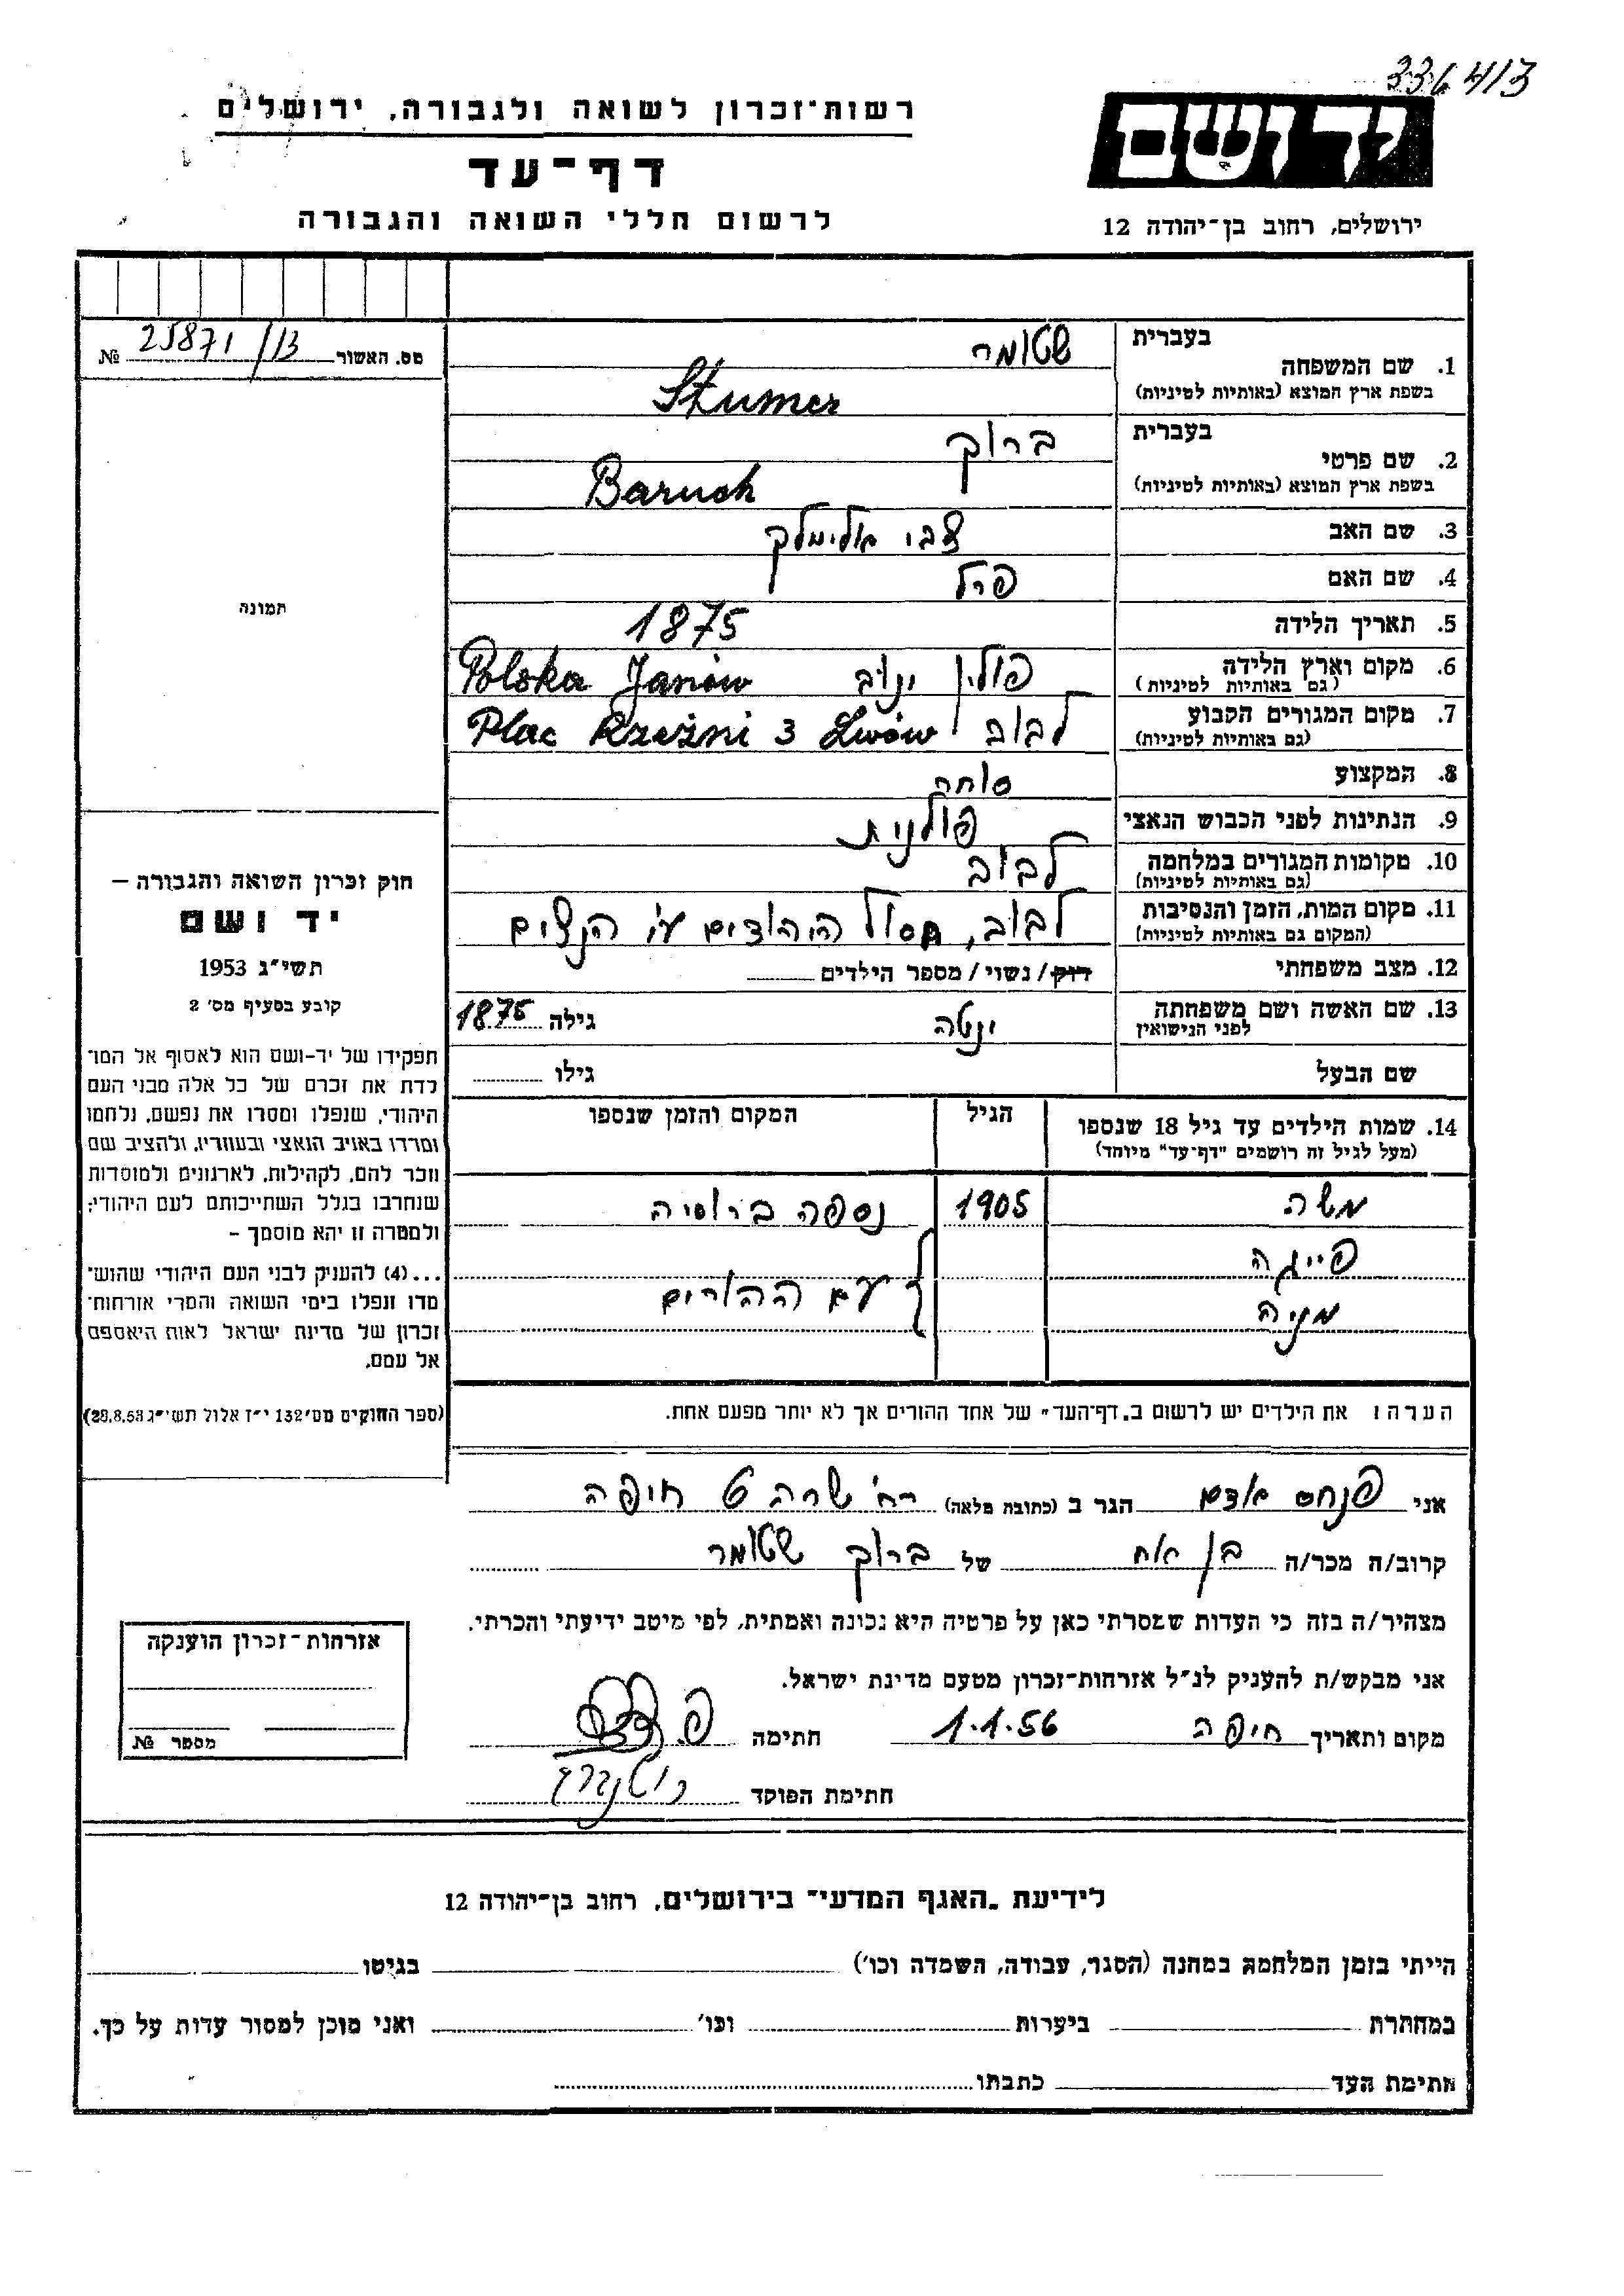 336413
יד ושם
רשות-זכרון לשואה ולגבורה, ירושלים
דף-עד
לרשום חללי השואה והגבורה
ירושלים, רחוב בן-יהודה 12
מס. האשור 25871/13 №
בעברית שטומר
1. שם המשפחה
בשפת ארץ המוצא (באותיות לטיניות) Sztumer
בעברית ברוך
2. שם פרטי
בשפת ארץ המוצא (באותיות לטיניות) Baruch
3. שם האב צבי אלימלך
4. שם האם פרל
5. תאריך הלידה 1875
6. מקום וארץ הלידה פולין ינוב Polska Janów
(גם באותיות לטיניות)
7. מקום המגורים הקבוע לבוב Plac Rzeźni 3 Lwów
(גם באותיות לטיניות)
8. המקצוע סוחר
9. הנתינות לפני הכבוש הנאצי פולנית
10. מקומות המגורים במלחמה לבוב
(גם באותיות לטיניות)
11. מקום המות, הזמן והנסיבות לבוב, חסול היהודים ע"י הנצים
(המקום גם באותיות לטיניות)
12. מצב משפחתי רוק/ נשוי/ מספר הילדים
13. שם האשה ושם משפחתה ינטה גילה 1875
לפני הנישואין
שם הבעל גילו
14. שמות הילדים עד גיל 18 שנספו הגיל המקום והזמן שנספו
(מעל לגיל זה רושמים "דף-עד" מיוחד)
משה 1905 נספה ברוסיה
פייגה
עם ההורים
מניה
הערה: את הילדים יש לרשום ב"דף-העד" של אחד ההורים אך לא יותר מפעם אחת.
תמונה
חוק זכרון השואה והגבורה –
יד ושם
תשי"ג 1953
קובע בסעיף מס' 2
תפקידו של יד-ושם הוא לאסוף אל המו־
לדת את זכרם של כל אלה מבני העם
היהודי, שנפלו ומסרו את נפשם, נלחמו
ומרדו באויב הנאצי ובעוזריו, ולהציב שם
וזכר להם, לקהילות, לארגונים ולמוסדות
שנחרבו בגלל השתייכותם לעם היהודי;
ולמטרה זו יהא מוסמך –
...(4) להעניק לבני העם היהודי שהוש־
מדו ונפלו בימי השואה והמרי אזרחות־
זכרון של מדינת ישראל לאות היאספם
אל עמם.
(ספר החוקים מס' 132 י"ז אלול תשי"ג 28.8.53)
אני פנחס אדם הגר ב (כתובת מלאה) רח' שרה 6 חיפה
קרוב/ה מכר/ה בן אח של ברוך שטומר
מצהיר/ה בזה כי העדות שמסרתי כאן על פרטיה היא נכונה ואמתית, לפי מיטב ידיעתי והכרתי.
אני מבקש/ת להעניק לנ"ל אזרחות-זכרון מטעם מדינת ישראל.
מקום ותאריך חיפה 1.1.56 חתימה
חתימת הפוקד
אזרחות-זכרון הוענקה
מספר №
לידיעת "האגף המדעי" בירושלים, רחוב בן-יהודה 12
הייתי בזמן המלחמה במחנה (הסגר, עבודה, השמדה וכו') בגיטו
במחתרת ביערות וכו' ואני מוכן למסור עדות על כך.
חתימת העד כתבתו